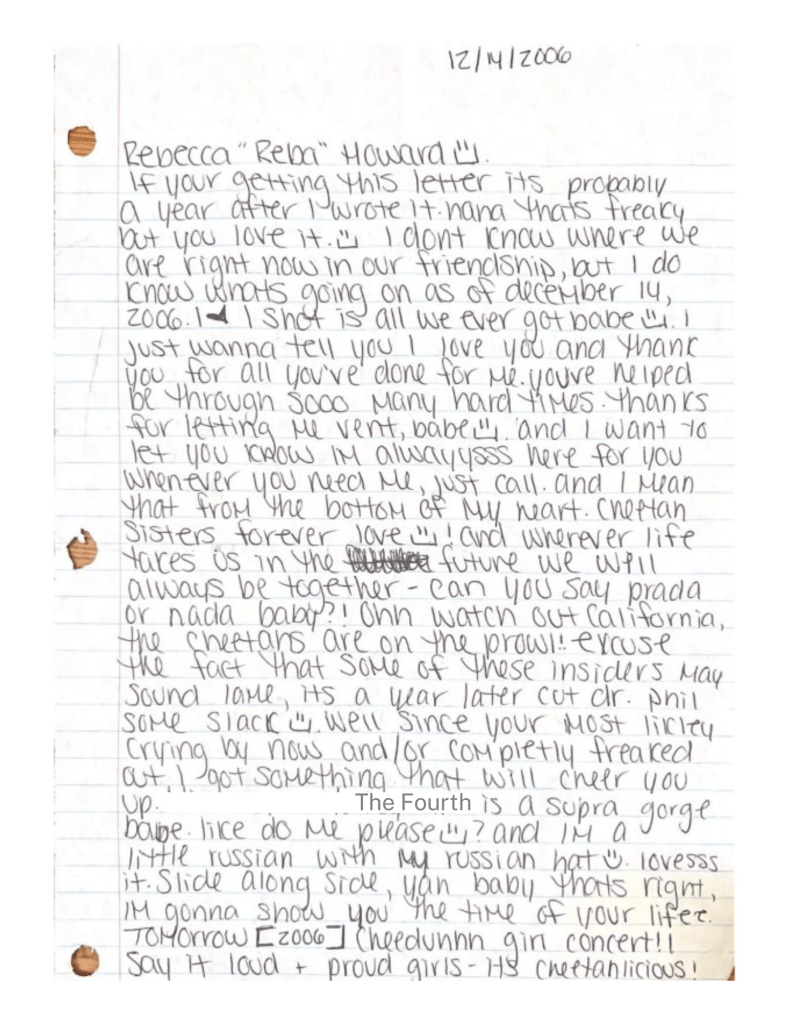 12/14/2006
Rebecca "Reba" Howard
If your getting this letter its probably
a year after I wrote it. haha thats freaky
but you love it. I dont know where we
are right now in our friendship, but I do
know whats going on as of december 14,
2006. 1 shot is all we ever got babe. I
just wanna tell you I love you and thank
you for all you've done for me. youve helped
be through sooo many hard times. thanks
for letting me vent, babe. and I want to
let you know im alwayysss here for you
whenever you need me, just call. and I mean
that from the bottom of my heart. Cheetah
Sisters forever love! and wherever life
takes us in the future we will
always be together - can you say prada
or nada baby?! Ohh watch out California,
the cheetahs are on the prowl!! excuse
the fact that some of these insiders may
sound lame, its a year later cut dr. phil
some slack. Well since your most likley
crying by now and/or completly freaked
out, I got something that will cheer you
up. The Fourth is a supra gorge
babe. like do me please? and IM a
little russian with my russian hat. lovesss
it. Slide along side, yah baby thats right,
IM gonna show you the time of your life.
TOMORROW [2006] Cheeduhhh girl concert!!
Say it loud + proud girls - its cheetahlicious!